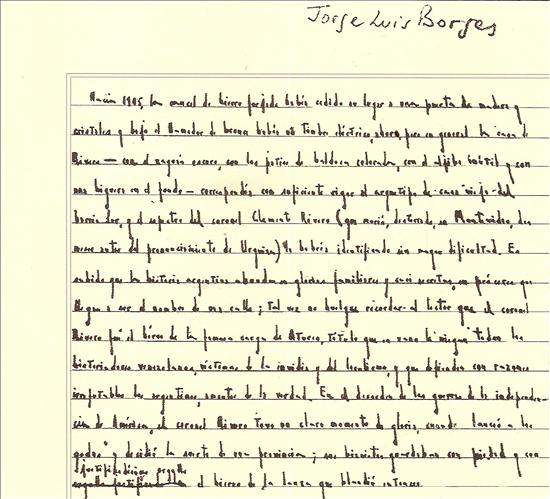 Jorge Luis Borges
Hacia 1905, la cancel de hierro forjado había cedido su lugar a una puerta de madera y
cristales y bajo el llamador de bronce había un timbre eléctrico, ahora, pero en general la casa de
Rivero — con el zaguán oscuro, con los patios de baldosa colorada, con el aljibe inútil y con
una higuera en el fondo — correspondía con suficiente rigor al arquetipo de casa vieja del
barrio Sur, y el espectro del coronel Clemente Rivero (que murió, desterrado, en Montevideo, diez
meses antes del pronunciamiento de Urquiza) la habría identificado sin mayor dificultad. Es
sabido que la historia argentina abunda en glorias familiares y casi secretas, en próceres que
llegan a ser el nombre de una calle; tal vez no huelgue recordar al lector que el coronel
Rivero fué el héroe de la famosa carga de título que en vano le niegan todos los
historiadores venezolanos, víctimas de la envidia y del localismo, y que defienden con razones
irrefutables los argentinos, amantes de la verdad. En el desorden de las guerras de la independen-
cia de América, el coronel Rivero tuvo un claro momento de gloria, cuando lanceó a los
godos y decidió la suerte de una provincia; sus bisnietos guardaban con piedad y con
justificadísimo orgullo
orgullo justificado en el hierro de la lanza que blandió entonces.